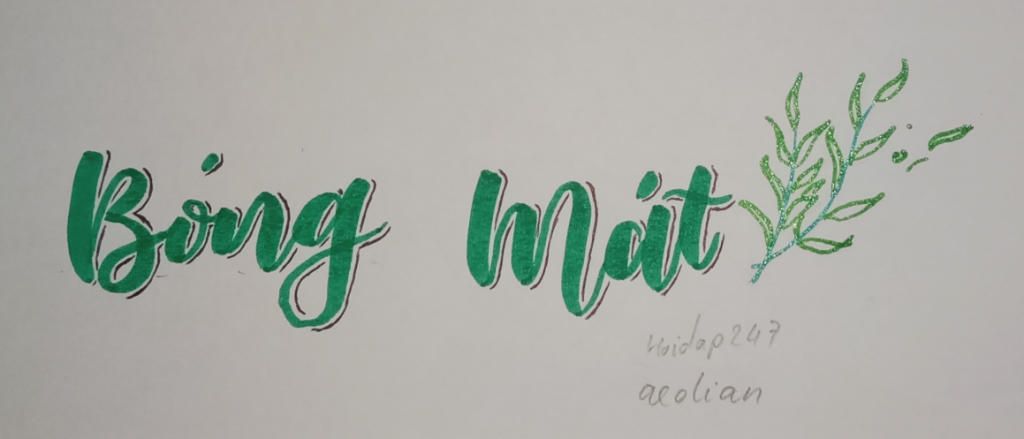 Bóng Mát
Hoidap247
aeolian